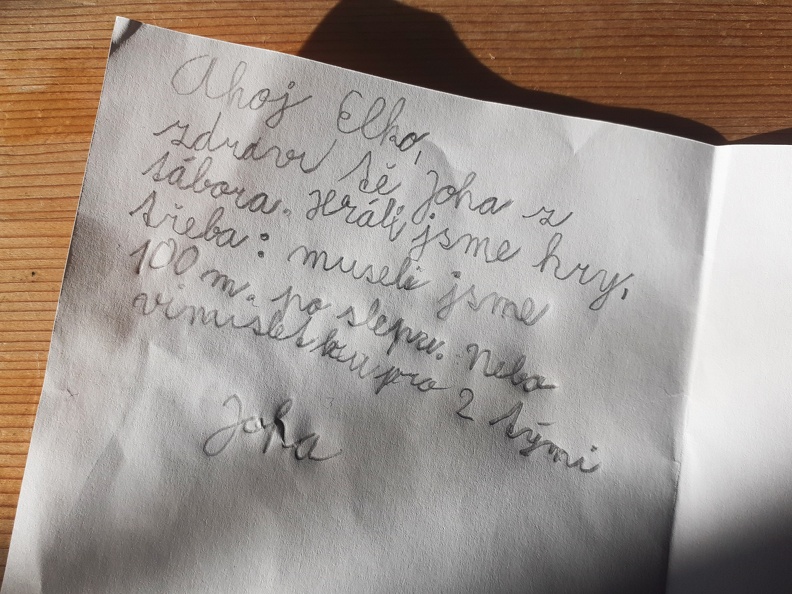 Ahoj Elko,
zdraví tě Joha z
tábora. Hráli jsme hry,
třeba: museli jsme
100 m. po slepu. Nebo
vimislet hru pro 2 tými
Joha